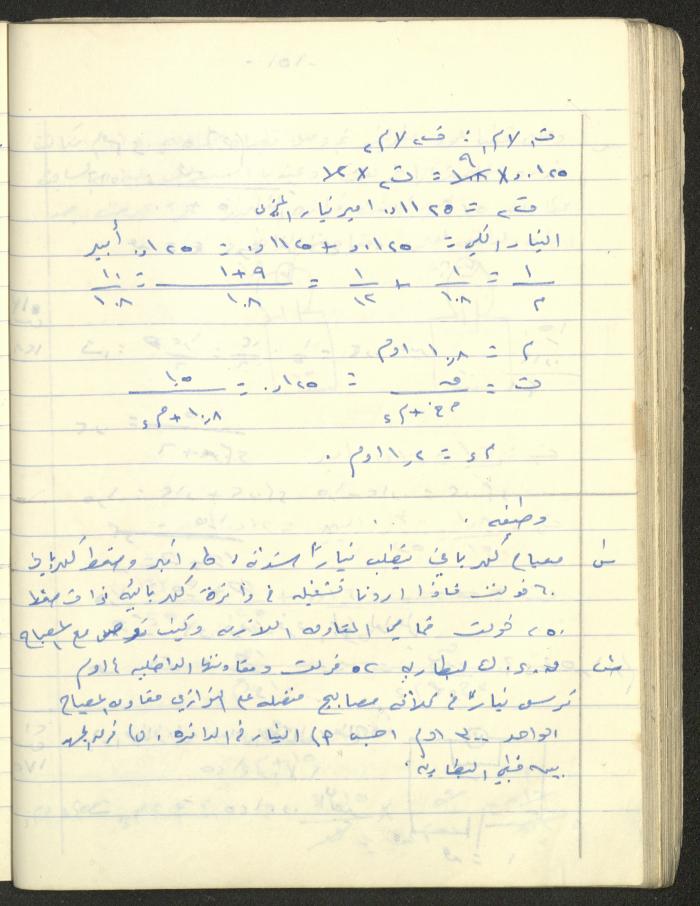 ت١ × م١ = ت٢ × م٢
٠١٢٥ر٠ × ١٠٨ = ت٢ × ١٢
ت٢ = ١١٢٥ر٠ امبير تيار المجزئ
التيار الكلي = ٠١٢٥ر٠ + ١١٢٥ر٠ = ١٢٥ر٠ أمبير
١/م = ١/١٠٨ + ١/١٢ = ٩+١/١٠٨ = ١٠/١٠٨
م = ١٠٫٨ اوم
ت = ١٢٥ر٠ = ١٫٥ / ١٠٫٨ + م٤
م٤ = ١٫٢ اوم .
وظيفه .
س مصباح كهربائي يتطلب تياراً شدته أمبير وضغط كهربائي
٦٠ فولت فاذا اردنا تشغيله في دائرة كهربائية ذات ضغط
فولت فما هي المقاومه اللازمه وكيف توصل مع المصباح
ق.د.ك لبطاريه ٥٢ فولت ومقاومتها الداخليه ٤ اوم
ترسل تياراً في ثلاثه مصابيح متصله على التوازي مقاومه المصباح
الواحد ٣٠٠ اوم احسب التيار في الدائرة . فرق الجهد
بين قطبي البطاريه .